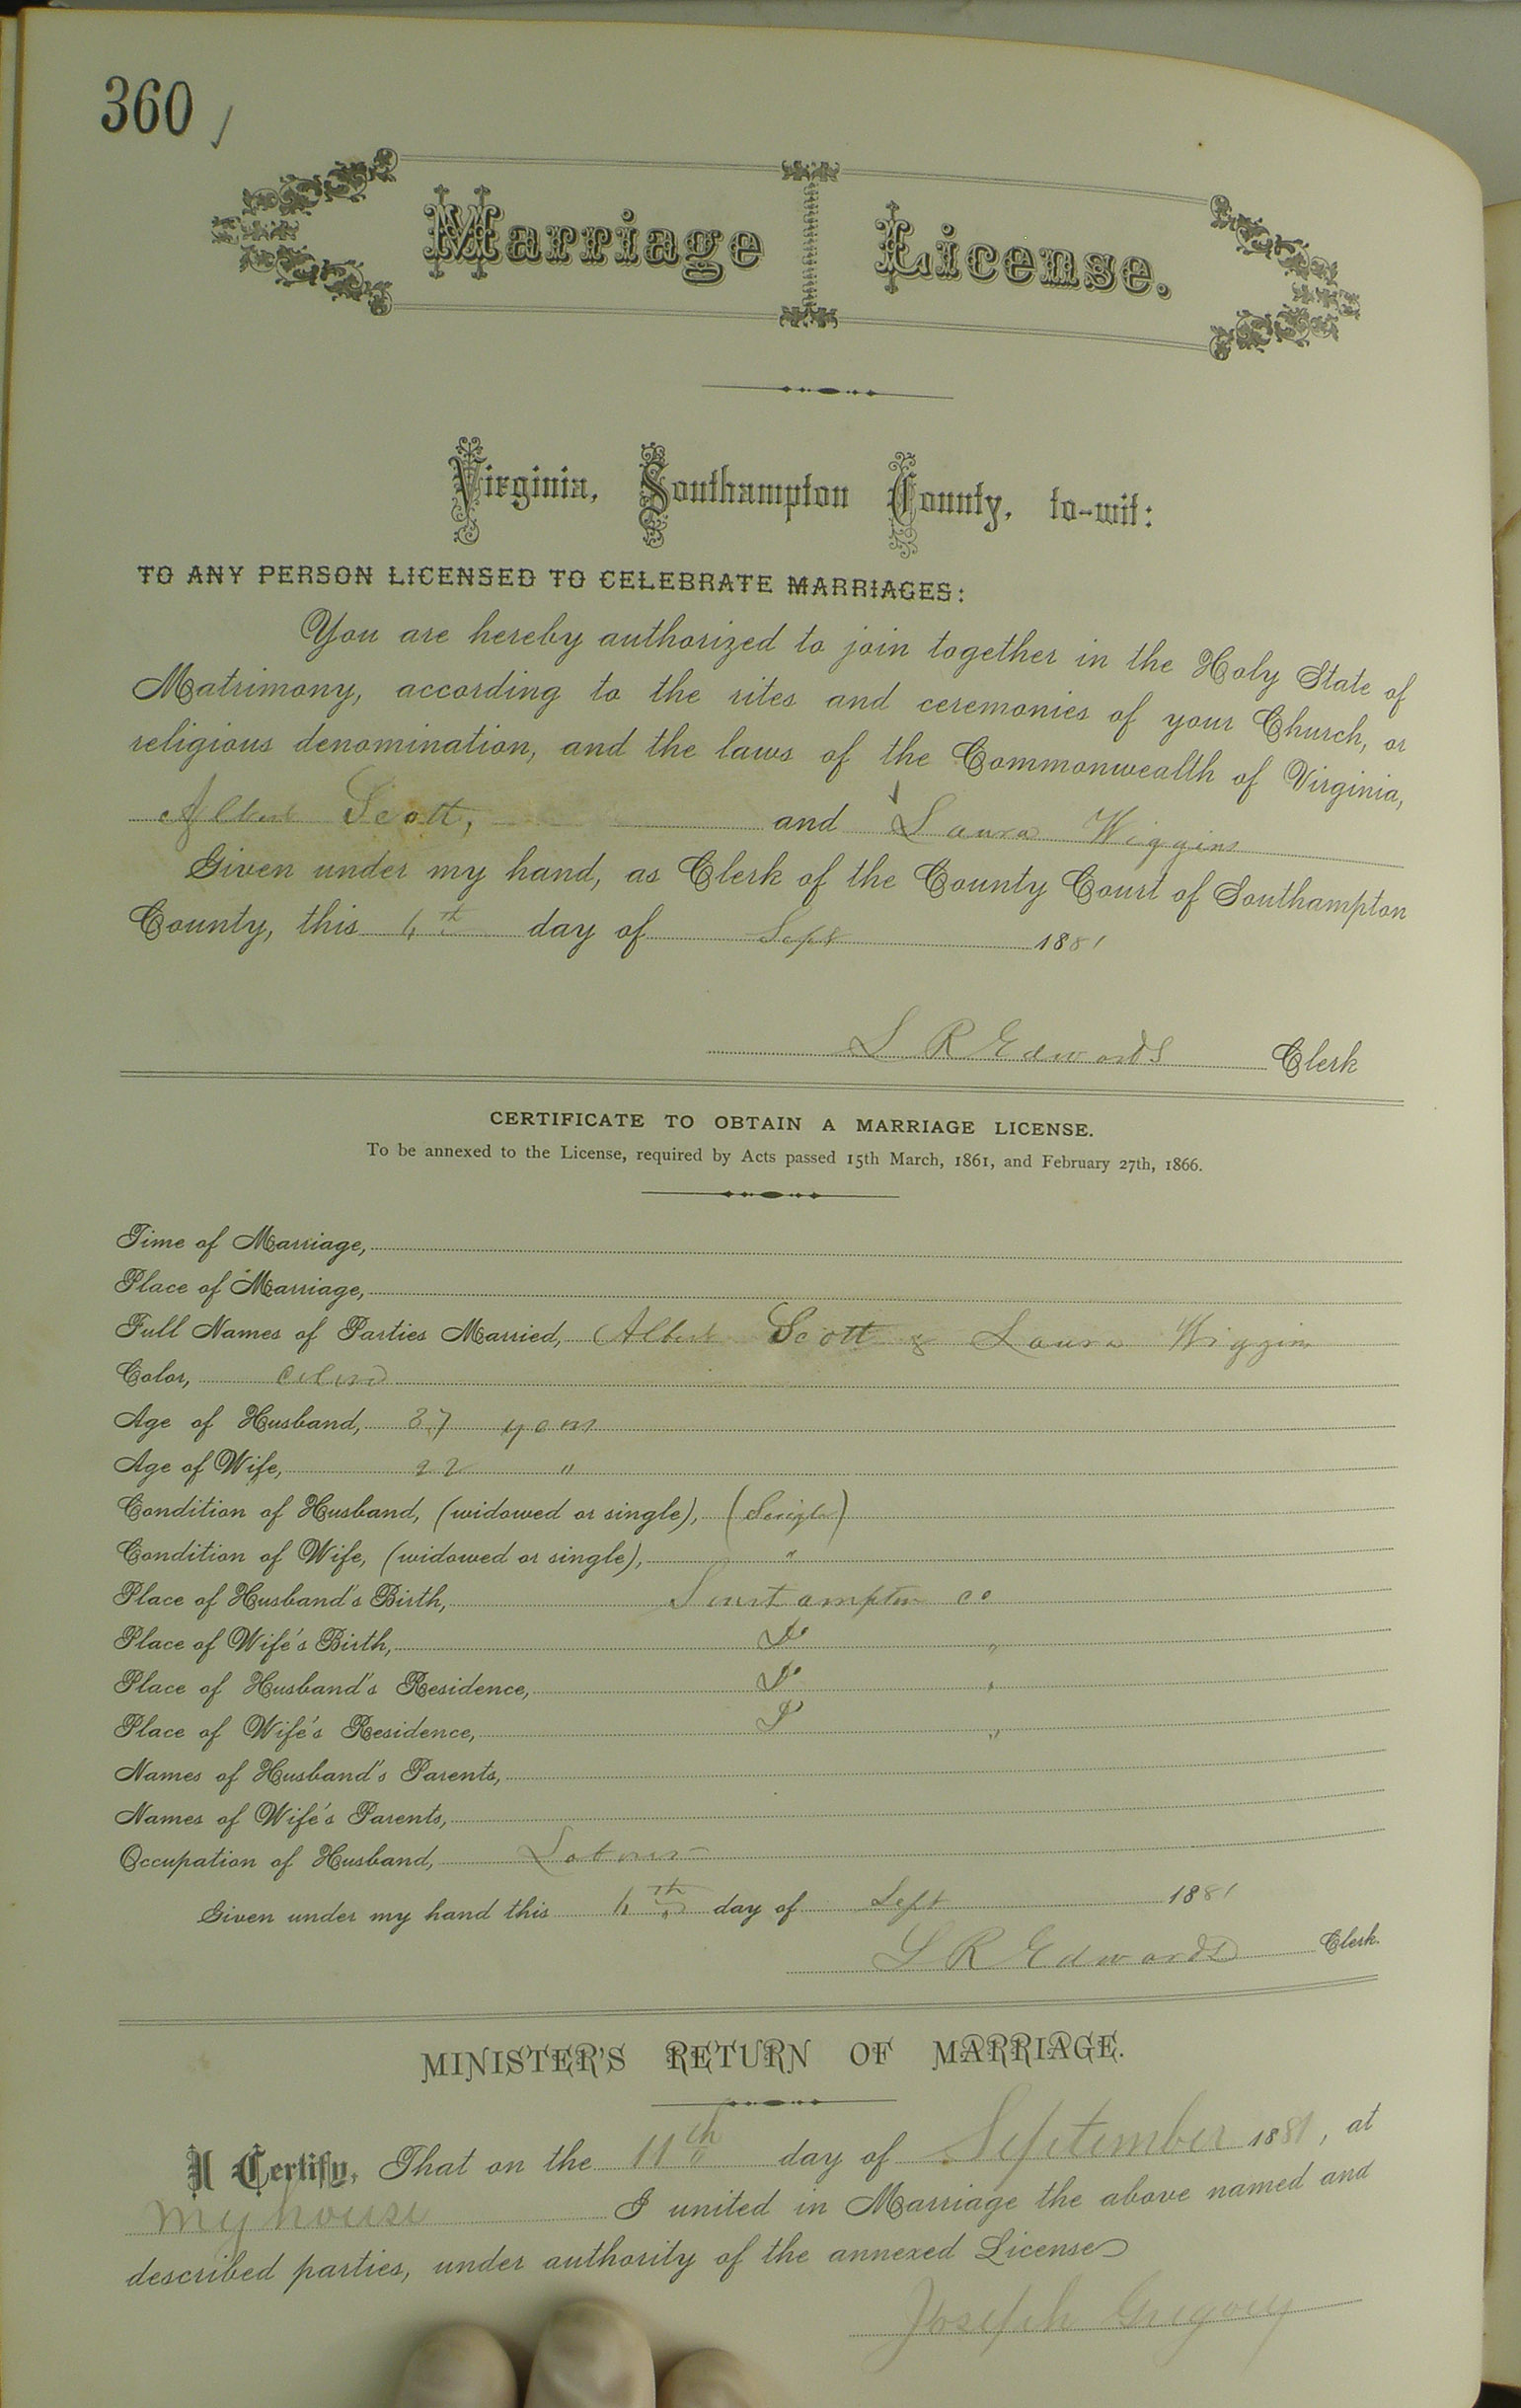 360
Marriage License.
Virginia, Southampton County, to-wit:
TO ANY PERSON LICENSED TO CELEBRATE MARRIAGES:
You are hereby authorized to join together in the Holy State of
Matrimony, according to the rites and ceremonies of your Church, or
religious denomination, and the laws of the Commonwealth of Virginia,
Albert Scott, and Laura Wiggins
Given under my hand, as Clerk of the County Court of Southampton
County, this day of Sept 1881
L R Edwards Clerk
CERTIFICATE TO OBTAIN A MARRIAGE LICENSE.
To be annexed to the License, required by Acts passed 15th March, 1861, and February 27th, 1866.
Time of Marriage,
Place of Marriage,
Full Names of Parties Married, Albert Scott & Laura Wiggins
Color, Colored
Age of Husband, 37 years
Age of Wife, 22 "
Condition of Husband, (widowed or single), (Single)
Condition of Wife, (widowed or single), "
Place of Husband's Birth, Southampton Co
Place of Wife's Birth, Do "
Place of Husband's Residence, Do "
Place of Wife's Residence, Do "
Names of Husband's Parents,
Names of Wife's Parents,
Occupation of Husband, Laborer
Given under my hand this day of Sept 1881
L R Edwards Clerk.
MINISTER'S RETURN OF MARRIAGE.
I Certify, That on the 11th day of September 1881, at
my house I united in Marriage the above named and
described parties, under authority of the annexed License
Joseph Gregory